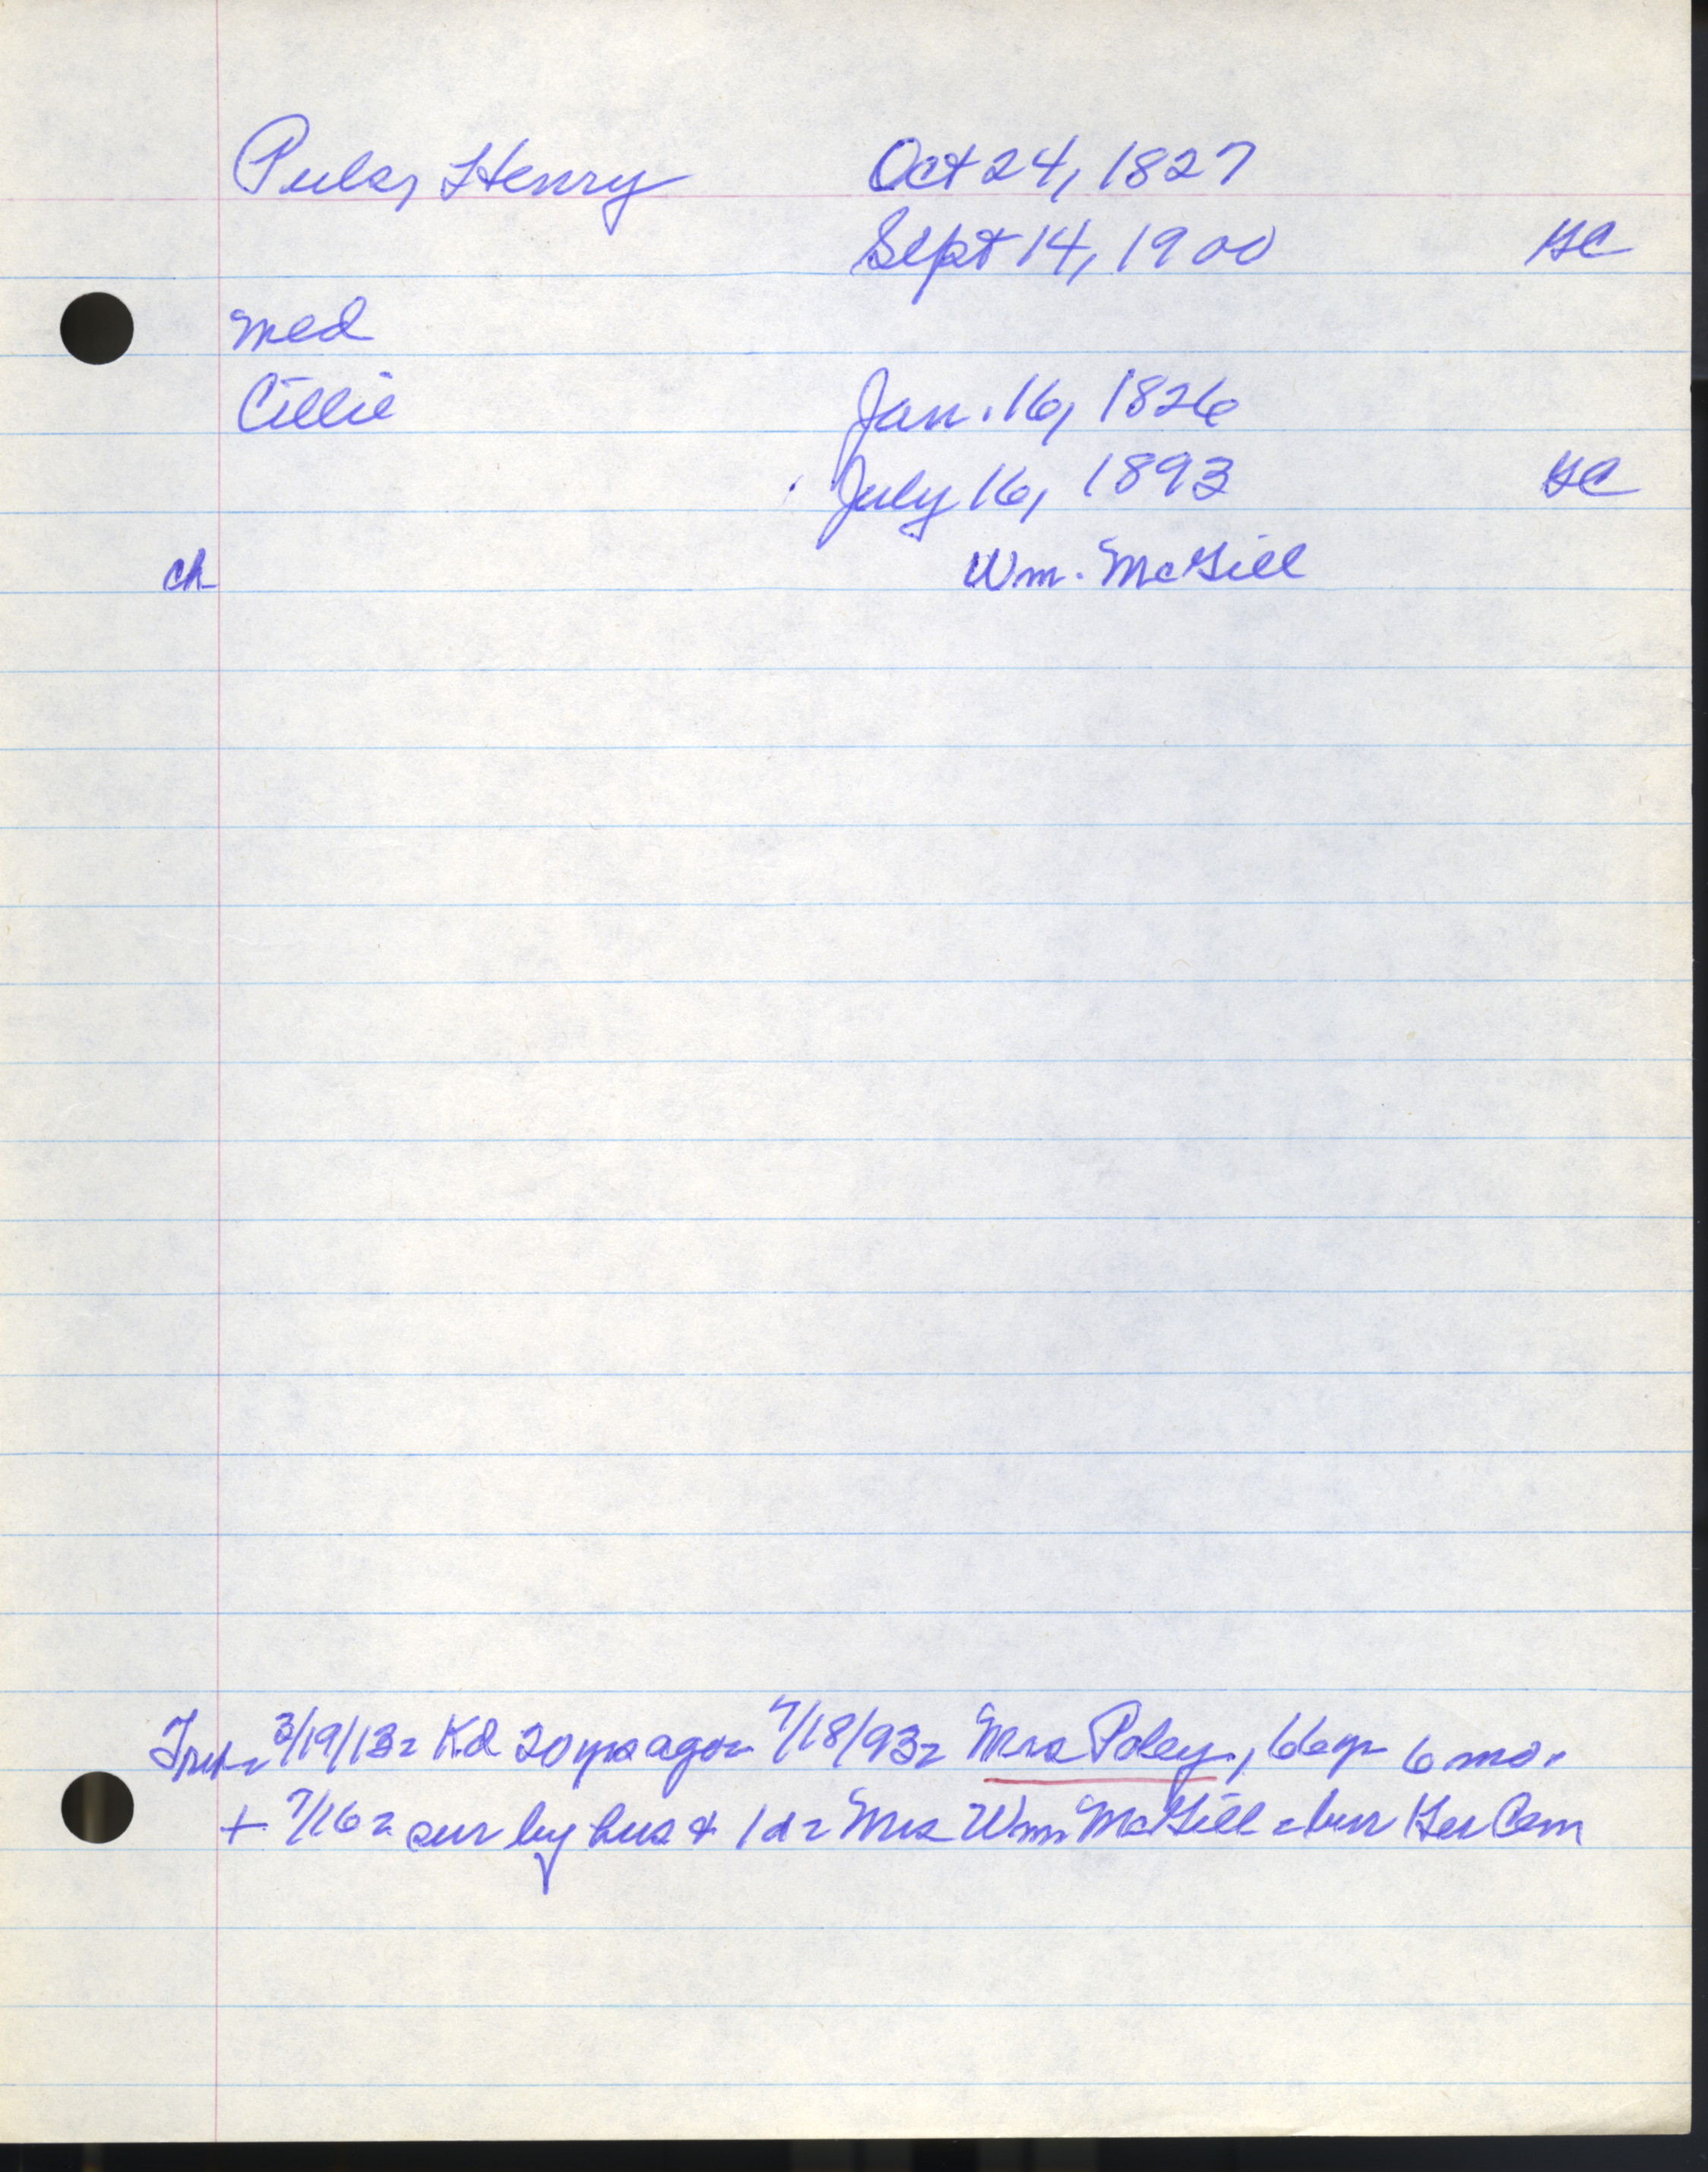 Puls, Henry Oct 24, 1827
Sept 14, 1900 GC
med
Cillie Jan. 16, 1826
July 16, 1893 GC
ch Wm. McGill
3/19/13 = Kd 20 yrs ago = 7/18/93 = Mrs Poley, 66 yr 6 mo.
+ 7/16 = sur by hus & 1 d = Mrs Wm McGill = bur Ger Cem